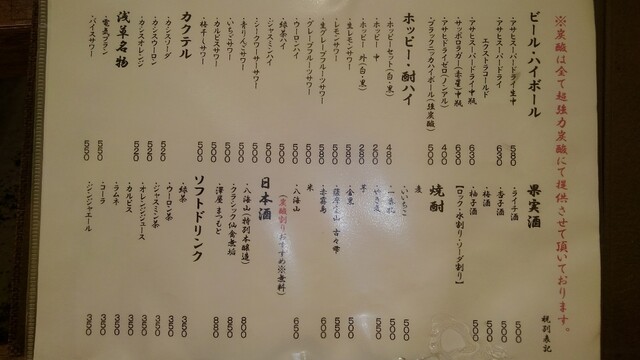 ※炭酸は全て超強力炭酸にて提供させて頂いております。
税別表記
ビール・ハイボール
・アサヒスーパードライ生中 580
・アサヒスーパードライ
エクストラコールド 630
・アサヒスーパードライ中瓶 630
・サッポロラガー(赤星)中瓶 630
・アサヒドライゼロ(ノンアル) 400
・ブラックニッカハイボール(強炭酸) 500
ホッピー・酎ハイ
・ホッピーセット(白・黒) 480
・ホッピー 中 250
・ホッピー 外(白・黒) 280
・生レモンサワー 500
・レモンサワー 500
・生グレープフルーツサワー 580
・グレープフルーツサワー 500
・ウーロンハイ 500
・緑茶ハイ 500
・ジャスミンハイ 500
・シークワーサーサワー 500
・青りんごサワー 500
・いちごサワー 500
・カルピスサワー 500
・梅干しサワー 500
カクテル
・カシスソーダ 520
・カシスウーロン 520
・カシスオレンジ 520
浅草名物
・電気ブラン 550
・バイスサワー 550
果実酒
・ライチ酒 500
・杏子酒 500
・梅酒 500
・柚子酒 500
【ロック・水割り・ソーダ割り】
焼酎
麦
・いいちこ 500
・二階堂 500
芋
・金黒 500
・薩摩宝山
・赤霧島 600
米
・八海山 650
(炭酸割りおすすめ※無料)
日本酒
・八海山(特別本醸造) 800
・クラシック仙禽無垢 850
・澤屋まつもと 880
ソフトドリンク
・緑茶 350
・ウーロン茶 350
・ジャスミン茶 350
・オレンジジュース 350
・カルピス 350
・ラムネ 350
・コーラ 350
・ジンジャエール 350